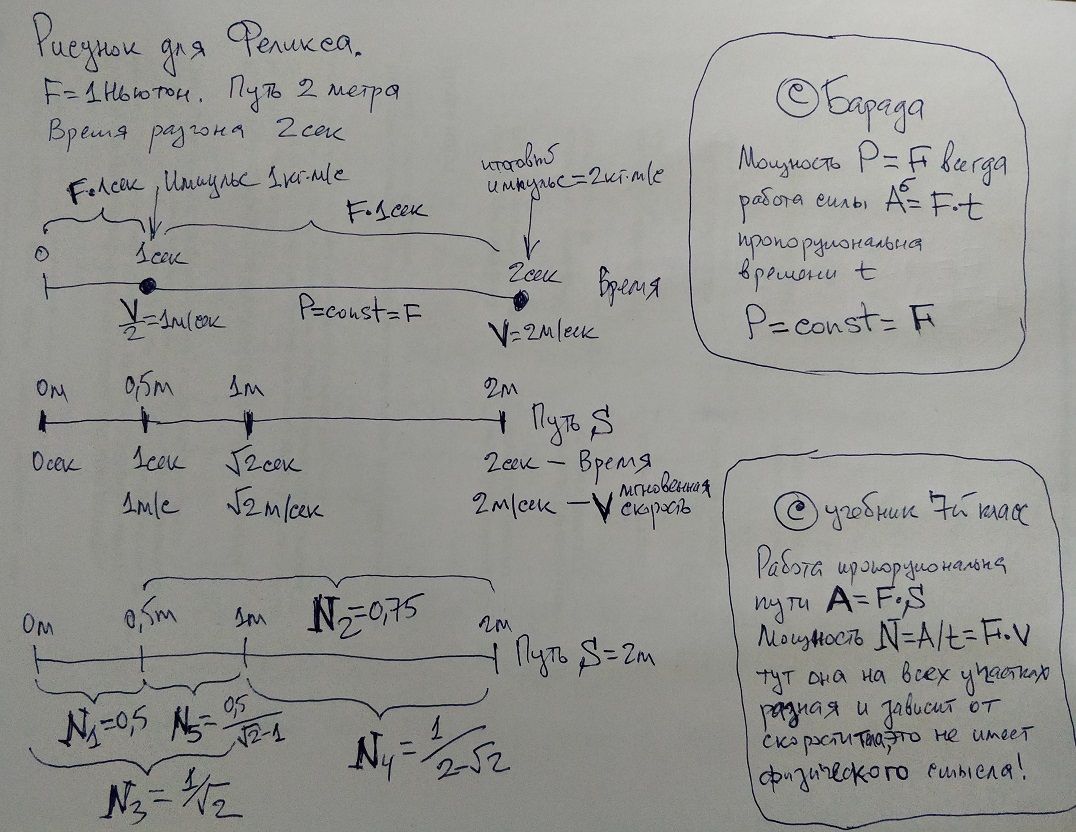 Рисунок для Феликса.
F=1Ньютон. Путь 2 метра
Время разгона 2сек
F·1сек Импульс 1кг·м/с
итоговый
импульс=2кг·м/с
F·1сек
0 1сек 2сек Время
V/2=1м/сек P=const=F V=2м/сек
0м 0,5м 1м 2м Путь S
0сек 1сек √2сек 2сек – Время
1м/с √2м/сек 2м/сек – V мгновенная скорость
N₂=0,75
0м 0,5м 1м 2м Путь S=2м
N₁=0,5 N₅=0,5/(√2-1) N₄=1/(2-√2)
N₃=1/√2
© Барада
Мощность P=F всегда
работа силы Aᵟ=F·t
пропорциональна
времени t
P=const=F
© учебник 7й класс
Работа пропорциональна
пути A=F·S
Мощность N=A/t=F·V
тут она на всех участках
разная и зависит от
скорости тела, это не имеет
физического смысла!